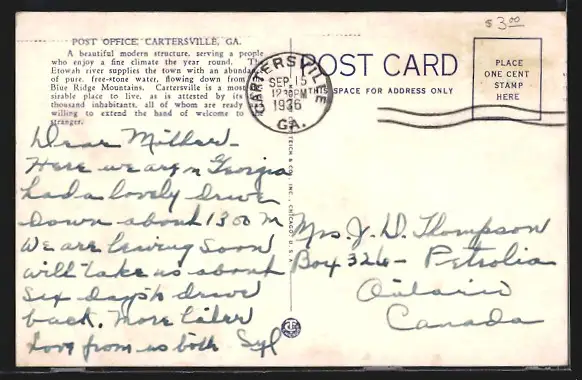 $3.00
POST OFFICE, CARTERSVILLE, GA.
A beautiful modern structure, serving a people
who enjoy a fine climate the year round. The
Etowah river supplies the town with an abundance
of pure, free-stone water, flowing down from
Blue Ridge Mountains. Cartersville is a most
sirable place to live, as is attested by its
thousand inhabitants, all of whom are ready
willing to extend the hand of welcome to
stranger.
Dear Mother-
Here we are n Georgia
had a lovely drive
down about 1300 M
We are leaving soon
will take us about
six days to drive
back. More later
Love from us both Syl
CARTERSVILLE
SEP 15
12 30PM
1936
GA.
POST CARD
THIS SPACE FOR ADDRESS ONLY
PLACE
ONE CENT
STAMP
HERE
TEICH & CO., INC., CHICAGO, U.S.A.
Mrs. J. D. Thompson
Box 326- Petrolia
Ontario
Canada